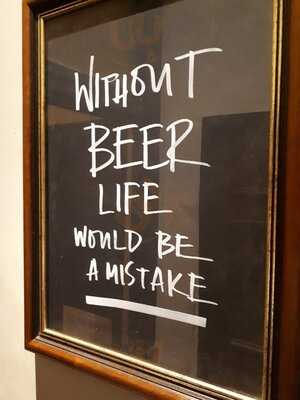 WITHOUT
BEER
LIFE
WOULD BE
A MISTAKE